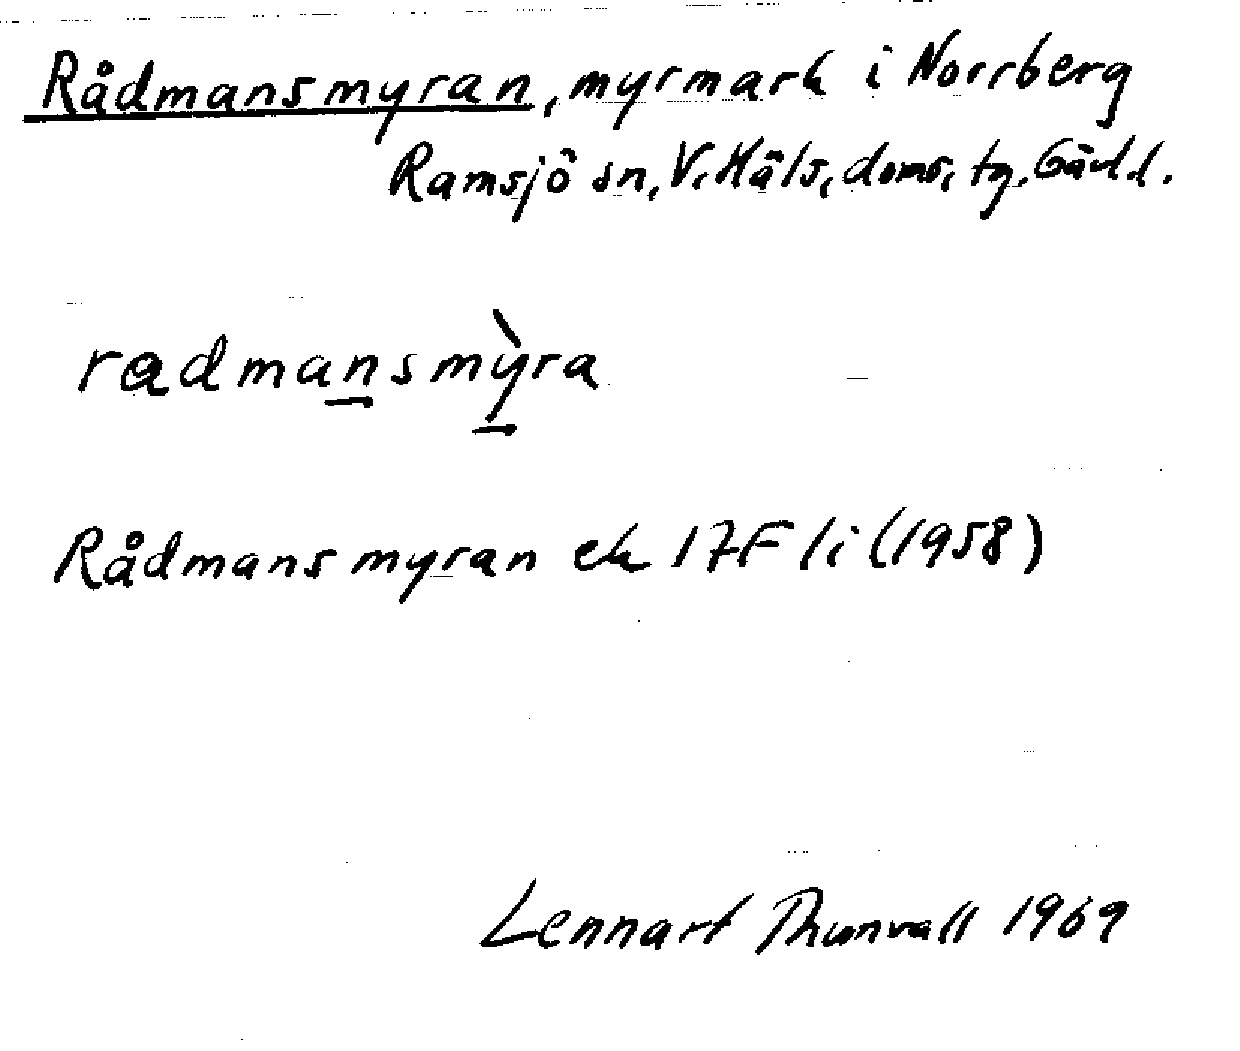 Rådmansmyran, myrmark i Norrberg
Ramsjö sn, V. Häls. doms. tg, Gävl. l.
radmansmỳra
Rådmansmyran ek 17F 1i (1958)
Lennart Thunvall 1969